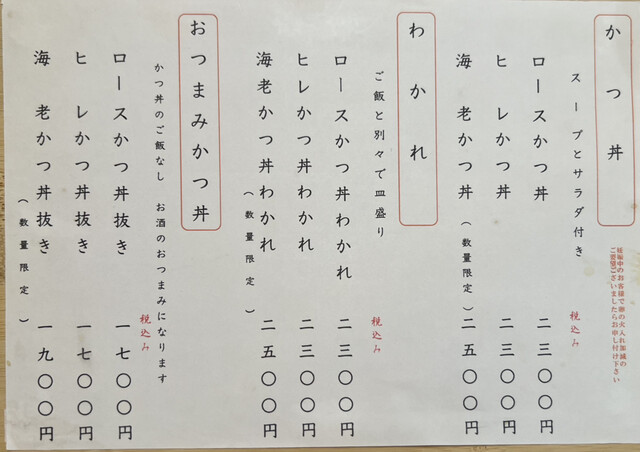 かつ丼
妊娠中のお客様で卵の火入れ加減の
ご要望ございましたらお申し付け下さい
スープとサラダ付き
税込み
ロースかつ丼 二三〇〇円
ヒレかつ丼 二三〇〇円
海老かつ丼(数量限定)二五〇〇円
わかれ
ご飯と別々で皿盛り
税込み
ロースかつ丼わかれ 二三〇〇円
ヒレかつ丼わかれ 二三〇〇円
海老かつ丼わかれ(数量限定)二五〇〇円
おつまみかつ丼
かつ丼のご飯なし お酒のおつまみになります
税込み
ロースかつ丼抜き 一七〇〇円
ヒレかつ丼抜き 一七〇〇円
海老かつ丼抜き(数量限定)一九〇〇円